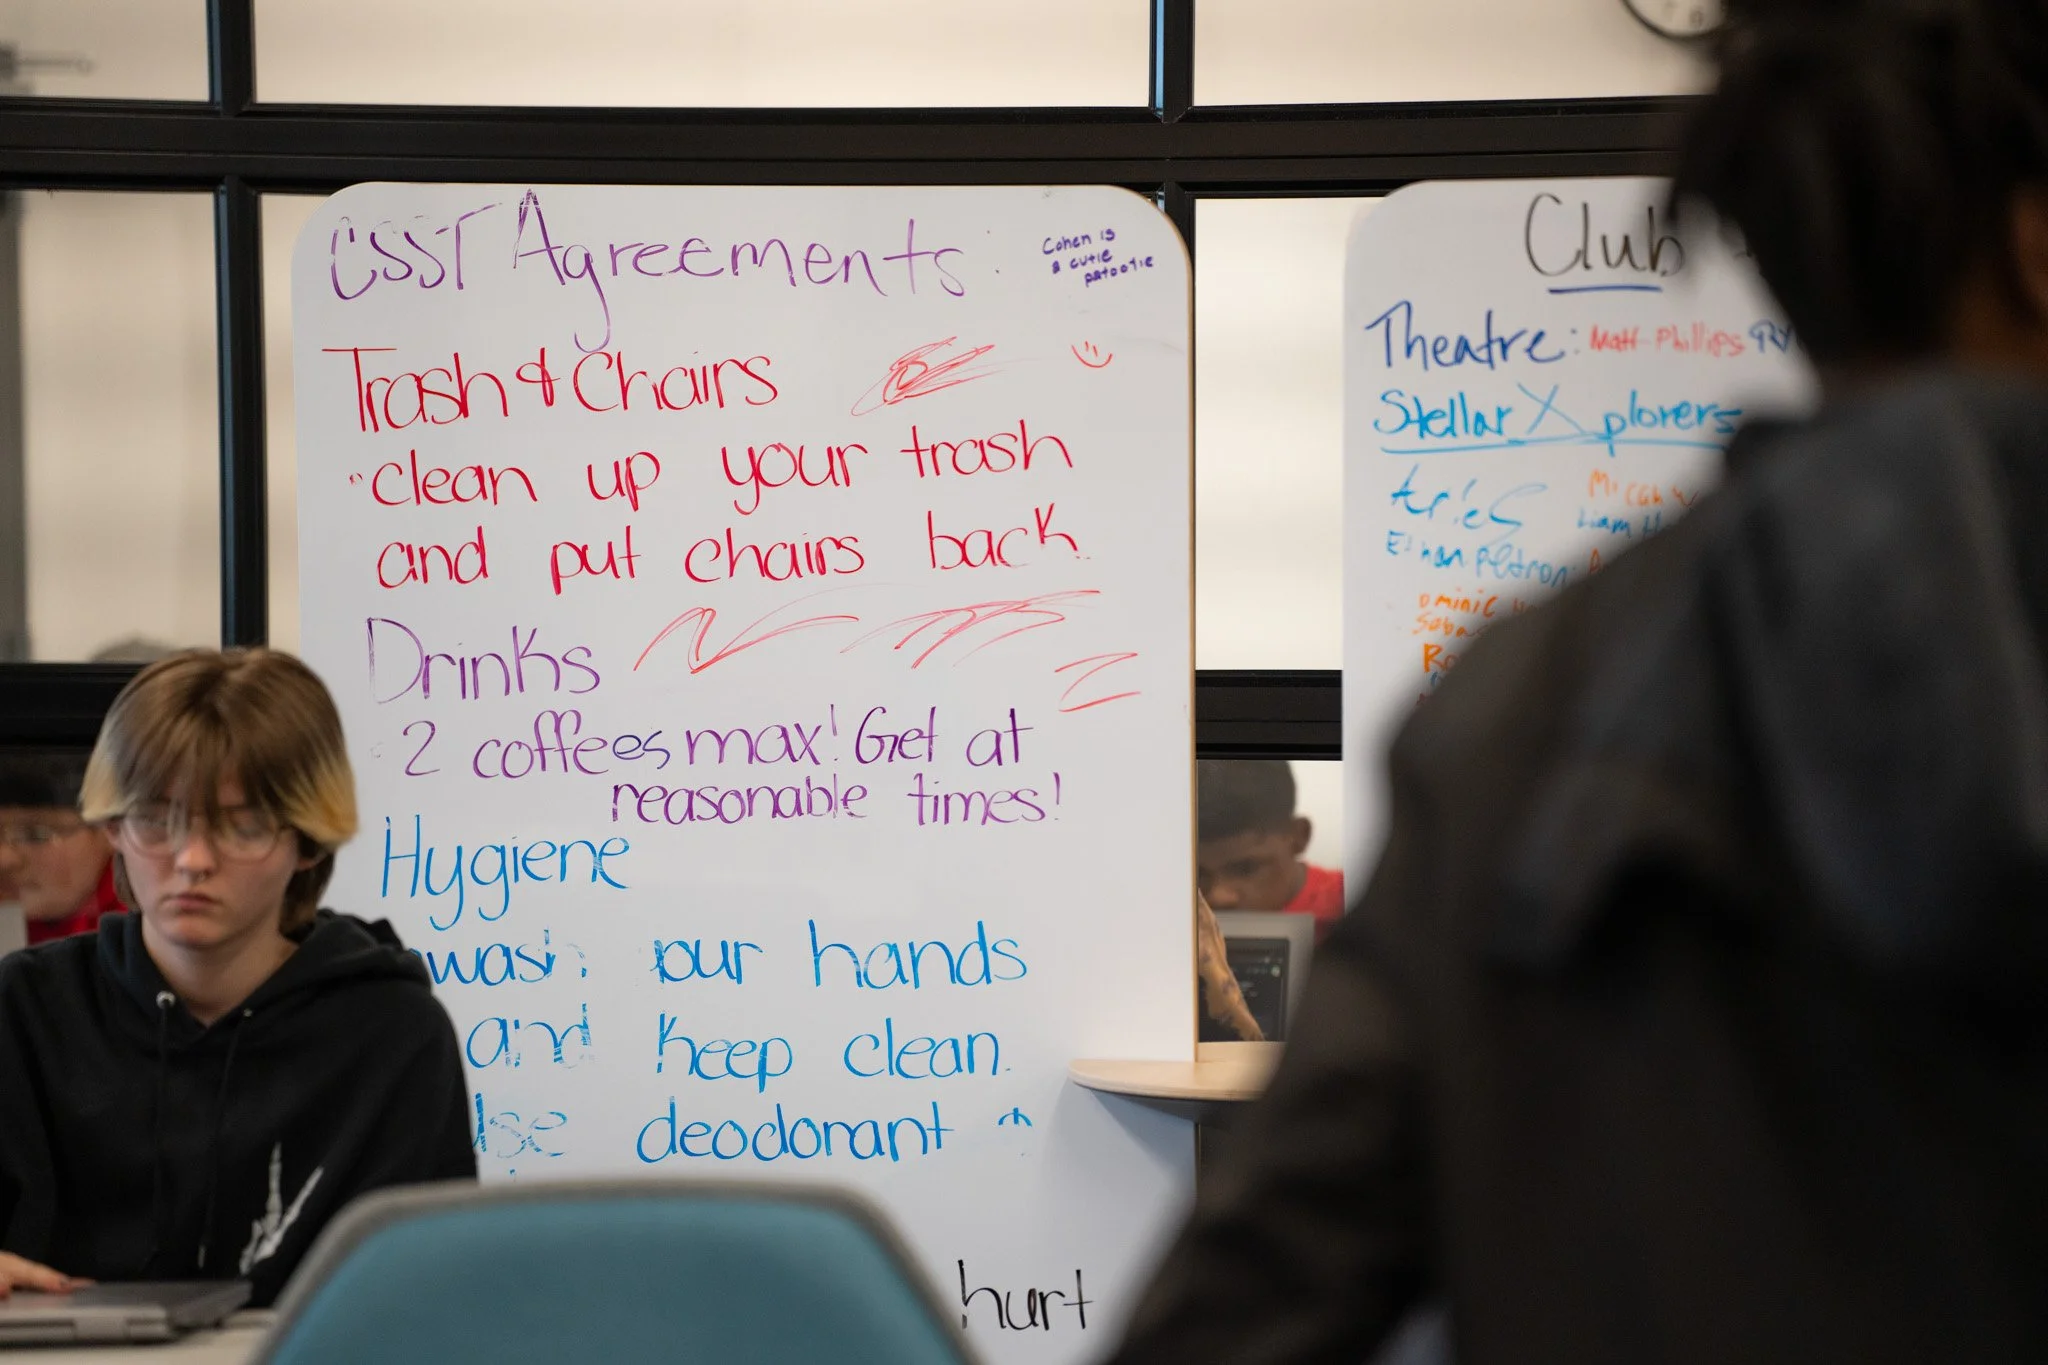 CSST Agreements:
Cohen is
a cutie
patootie
Trash & Chairs
clean up your trash
and put chairs back
Drinks
2 coffees max! Get at
reasonable times!
Hygiene
wash our hands
and keep clean.
use deodorant
hurt
Club
Theatre: Matt Phillips
Stellar Xplorers
Aries
Liam